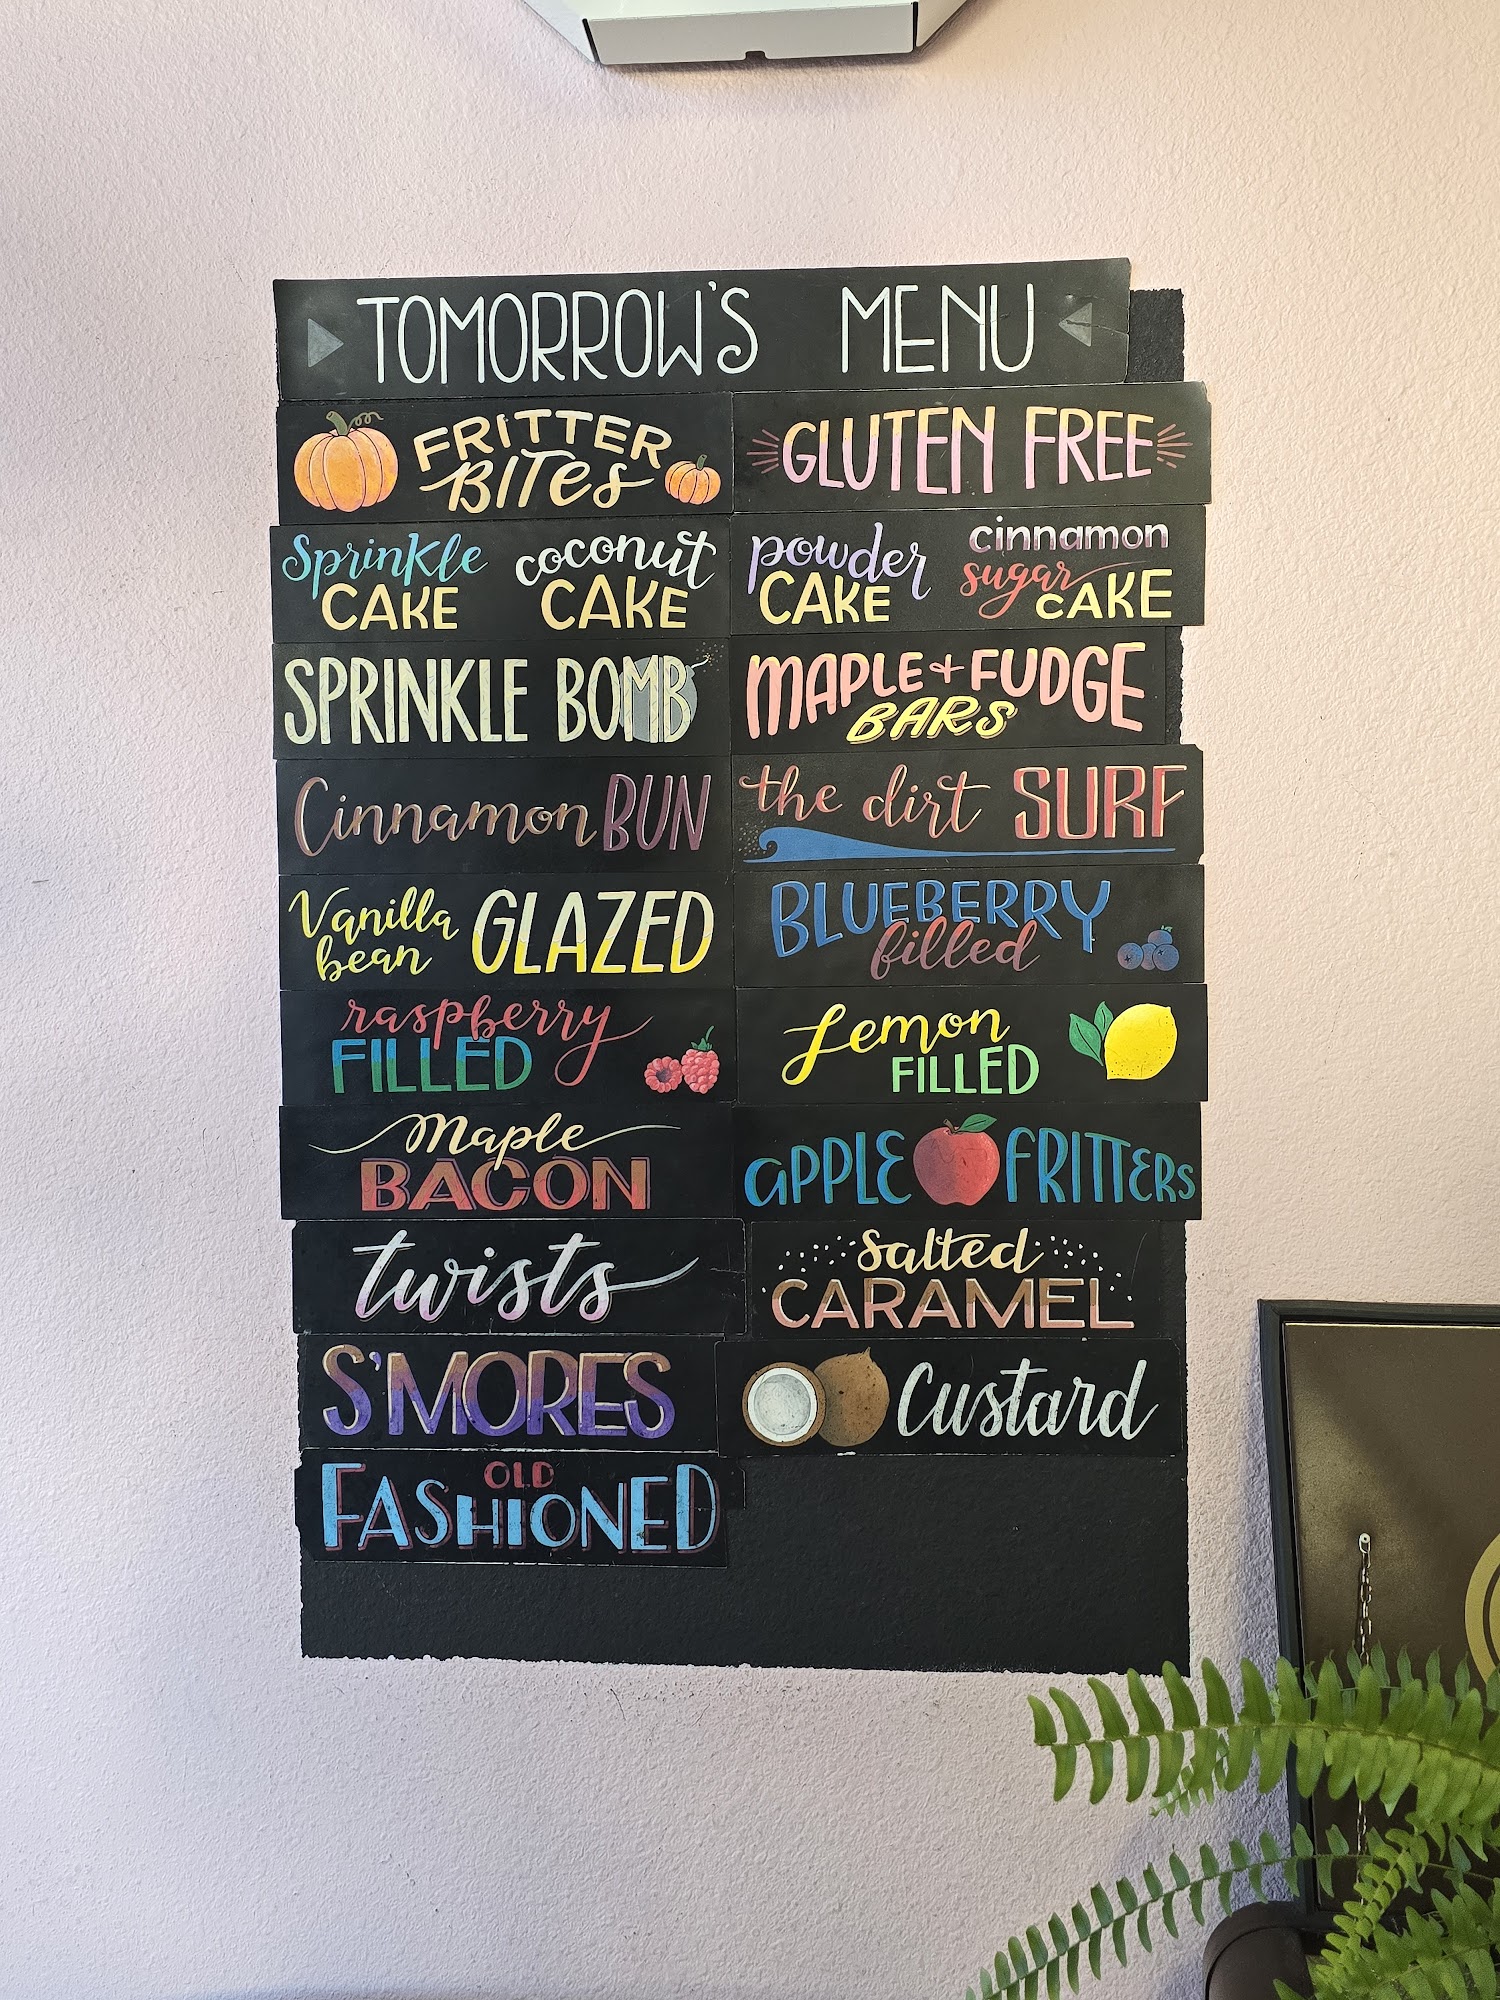 TOMORROW'S MENU
FRITTER
BITES
GLUTEN FREE
Sprinkle
CAKE
coconut
CAKE
powder
CAKE
cinnamon
sugar
CAKE
SPRINKLE BOMB
MAPLE + FUDGE
BARS
Cinnamon BUN
the dirt SURF
Vanilla
bean
GLAZED
BLUEBERRY
filled
raspberry
FILLED
Lemon
FILLED
Maple
BACON
APPLE FRITTERS
twists
Salted
CARAMEL
S'MORES
Custard
OLD
FASHIONED